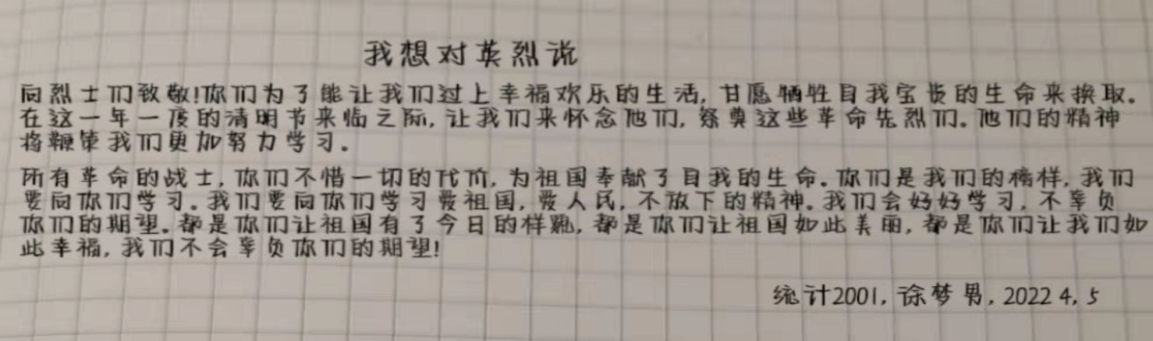 我想对英烈说
向烈士们致敬!你们为了能让我们过上幸福欢乐的生活,甘愿牺牲自我宝贵的生命来换取。
在这一年一度的清明节来临之际,让我们来怀念他们,祭奠这些革命先烈们。他们的精神
将鞭策我们更加努力学习。
所有革命的战士,你们不惜一切的代价,为祖国奉献了自我的生命。你们是我们的榜样,我们
要向你们学习。我们要向你们学习爱祖国,爱人民,不放下的精神。我们会好好学习,不辜负
你们的期望。都是你们让祖国有了今日的样貌,都是你们让祖国如此美丽,都是你们让我们如
此幸福,我们不会辜负你们的期望!
统计2001,徐梦男,2022 4,5